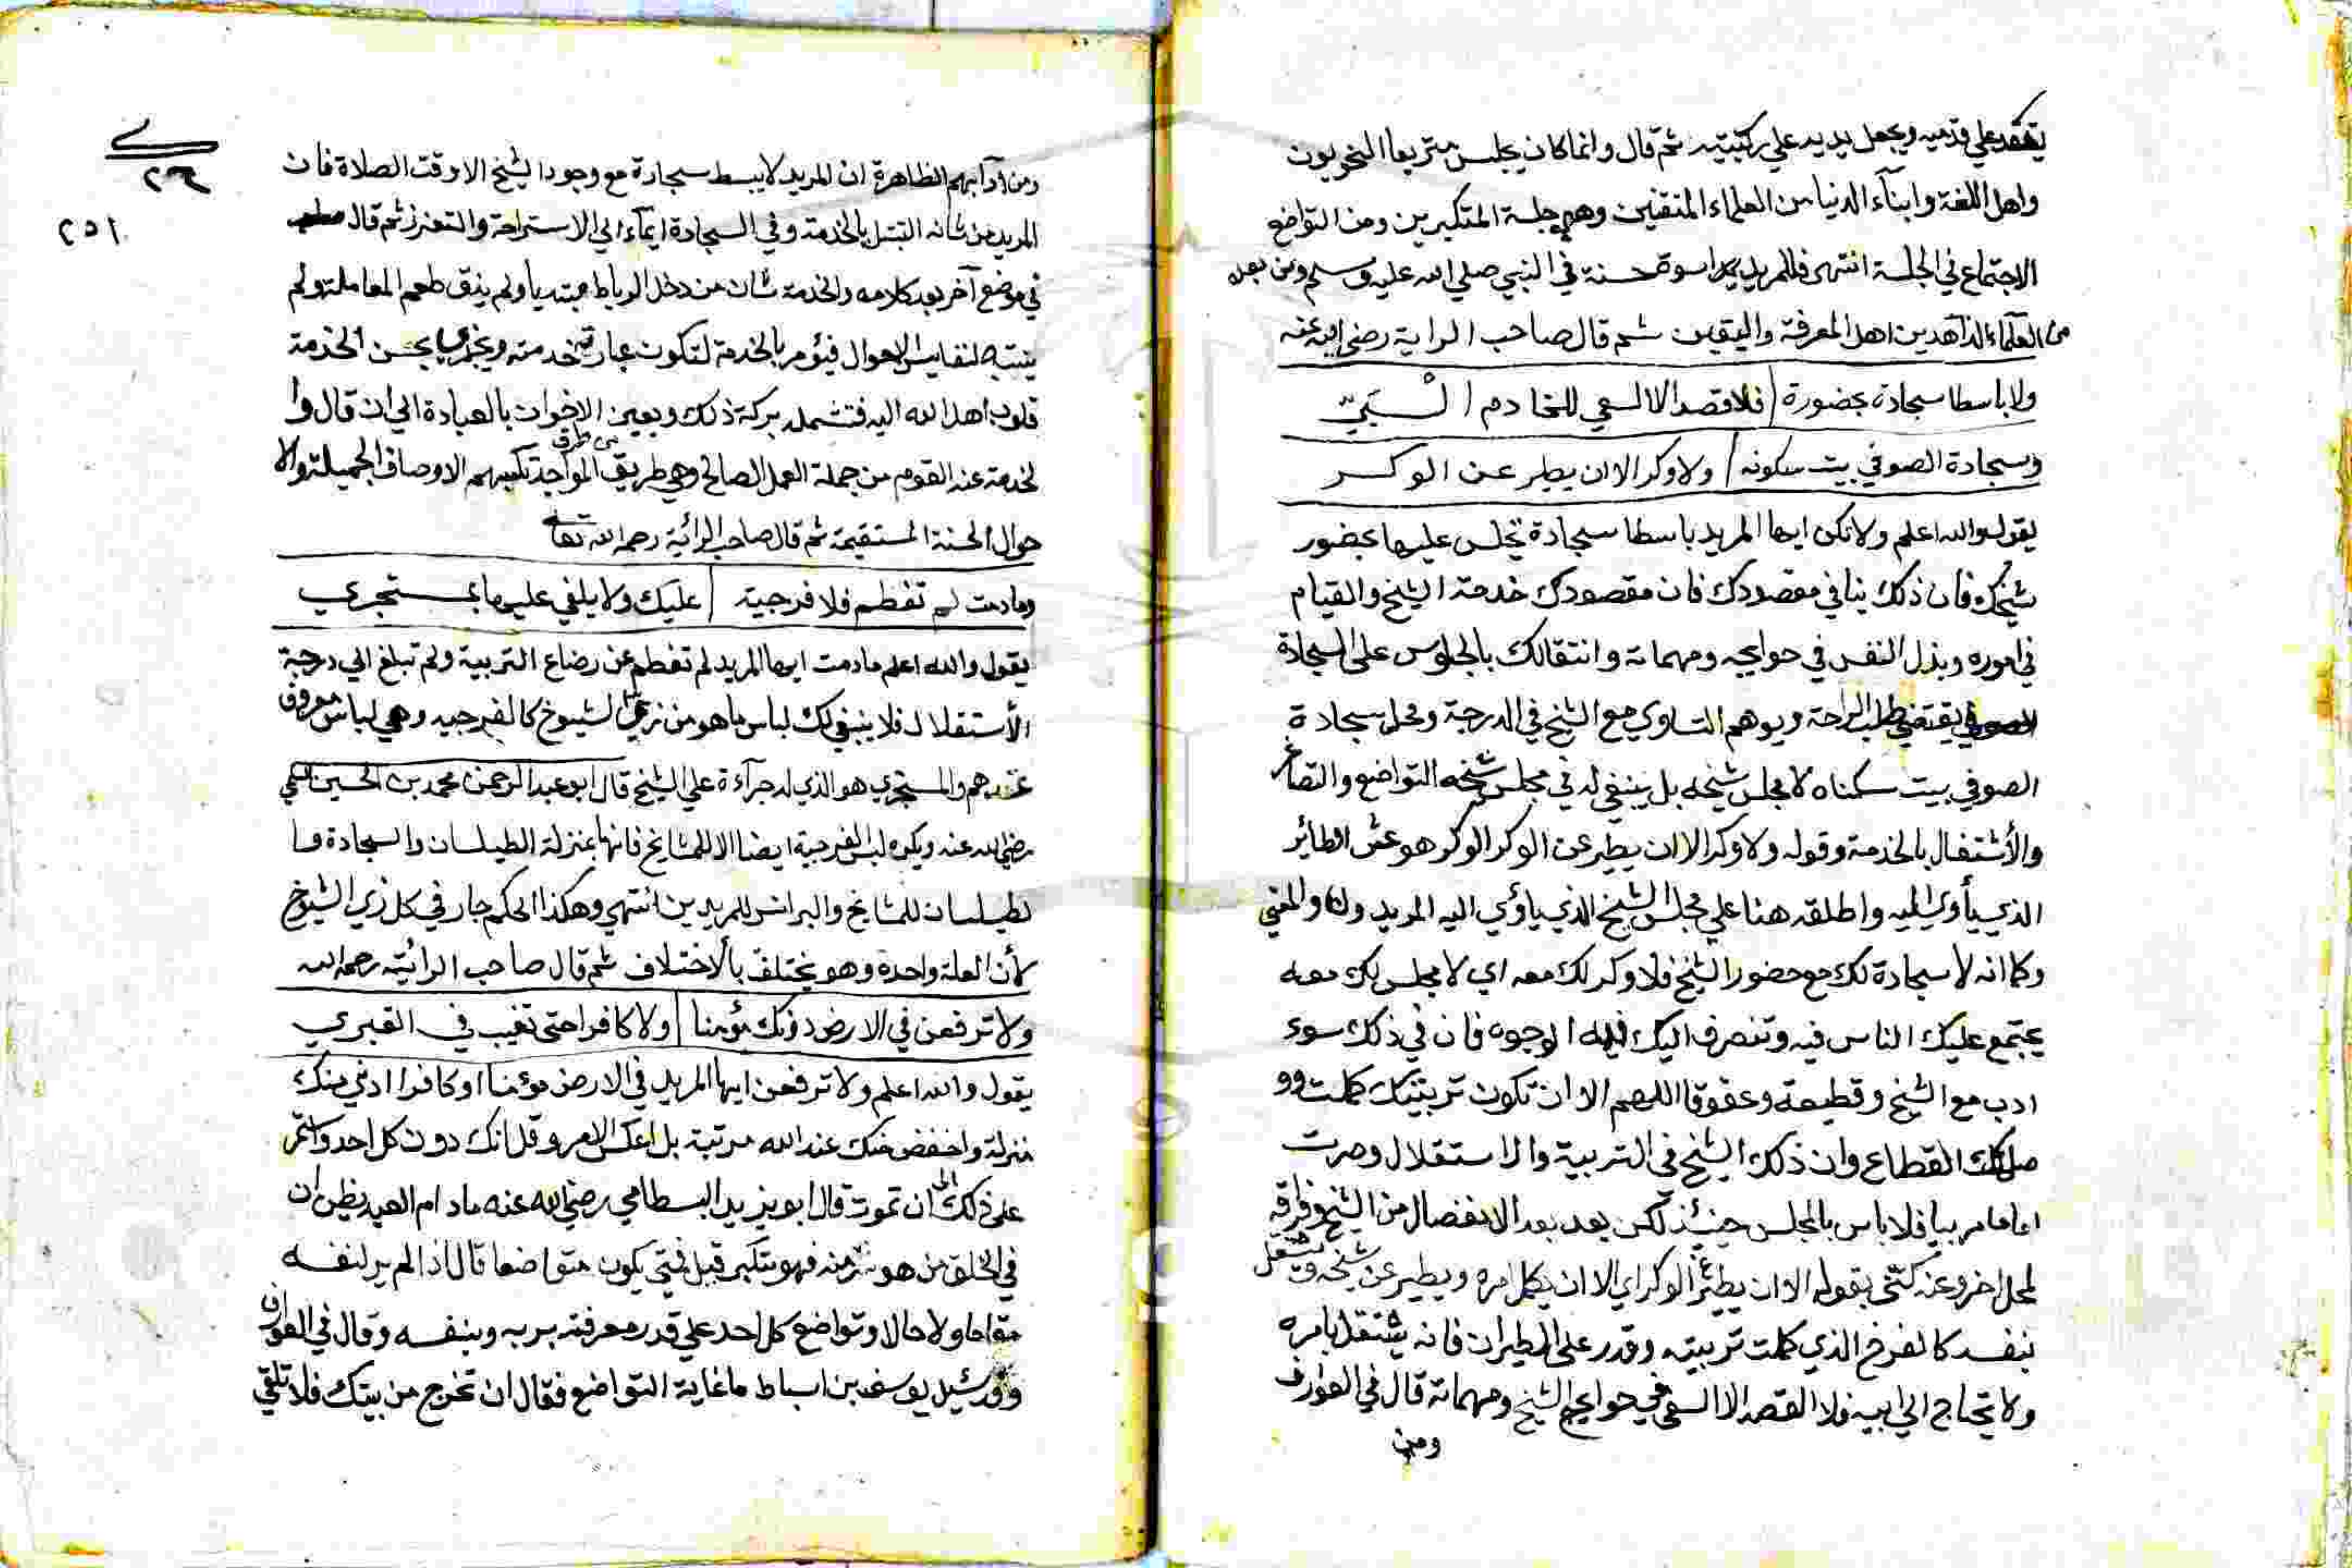 يقعد علي قدميه ويجعل يديه علي ركبتيه ثم قال وانما كان يجلس متربعا النحويون
واهل اللغة وابناء الدنيا من العلماء المتقين وهي جلسة المتكبرين ومن التواضع
الاجتماع في الجلسة انتهى فللمريد اسوة حسنة في النبي صلي الله عليه وسلم ومن بعده
من العلماء الزاهدين اهل المعرفة واليقين ثم قال صاحب الراية رضي الله عنه
ولا باسطا سجادة بحضورة فلا قصد الا السعي للخادم
وسجادة الصوفي بيت سكونه ولا وكر الا ان يطر عن الوكر
يقول والله اعلم ولا تكن ايها المريد باسطا سجادة تجلس عليها بحضور
شيخك فان ذلك ينافي مقصودك فان مقصودك خدمة الشيخ والقيام
في اموره وبذل النفس في حوايجه ومهماته وانتقالك بالجلوس على السجادة
يقتضي طلب الراحة ويوهم التساوي مع الشيخ في الدرجة ومحل سجادة
الصوفي بيت سكناه لا مجلس شيخه بل ينبغي له في مجلس شيخه التواضع والتصاغر
والأشتغال بالخدمة وقوله ولا وكر الا ان يطير عن الوكر الوكر هو عش الطائر
الذي يأوي اليه واطلقه هنا علي مجلس الشيخ الذي ياوي اليه المريد والمعني
وكما انه لا سجادة لك مع حضور الشيخ فلا وكر لك معه اي لا مجلس لك معه
يجتمع عليك الناس فيه وتنصرف اليك فيه الوجوه فان في ذلك سوء
ادب مع الشيخ وقطيعة وعقوقا اللهم الا ان تكون تربيتك كملت وو
القطاع وان ذلك الشيخ في التربية والاستقلال وصرت
اماما مربيا فلا باس بالمجلس حينئذ لكن بعد بعد الانفصال من الشيخ وفراقه
لمحل اخر وعنه كنى بقوله الا ان يطير عن الوكر اي الا ان يكمل امره ويطير عن شيخه ويشتغل
بنفسه كالفرخ الذي كملت تربيته وقدر على الطيران فانه يشتغل بامره
ولا يحتاج الي ابيه فلا القصد الا السعي في حوايج الشيخ ومهماته قال في العوارف
ومن
٢٦
٢٥١
ومن آدابهم الظاهرة ان المريد لا يبسط سجادة مع وجود الشيخ الا وقت الصلاة فان
المريد من شانه التبتل بالخدمة وفي السجادة ايماء الي الاستراحة والتعزز ثم قال
في موضع آخر بعد كلامه والخدمة شان من دخل الرباط مبتديا ولم يذق طعم المعاملة ولم
ينتبه لنفايس الاحوال فيؤمر بالخدمة لتكون عبادته خدمته ويجذب بحسن الخدمة
قلوب اهل الله اليه فتشمله بركة ذلك ويعين الاخوان بالعبادة الي ان قال وا
لخدمة عند القوم من جملة العمل الصالح وهي طريق من طرق المواجد تكسبهم الاوصاف الجميلة والا
حوال الحسنة المستقيمة ثم قال صاحب الرائية رحمه الله تعا
وما دمت لم تفطم فلا فرجية عليك ولا يلفي عليها بمستجري
يقول والله اعلم ما دمت ايها المريد لم تفطم عن رضاع التربية ولم تبلغ الي درجة
الأستقلال فلا ينبغي لك لباس ما هو من زي الشيوخ كالفرجيه وهي لباس معروف
عندهم والمستجري هو الذي له جرآءة علي الشيخ قال ابو عبد الرحمن محمد بن الحسين السلمي
رضي الله عنه ويكره لبس الفرجية ايضا الا للمشايخ فانها بمنزلة الطيلسان والسجادة وا
لطيلسان للمشايخ والبرانس للمريدين انتهي وهكذا الحكم جار في كل زي الشيوخ
لأن العلة واحده وهو يختلف بالاختلاف ثم قال صاحب الرائية رحمه الله
ولا ترفعن في الارض دونك مؤمنا ولا كافرا حتى تغيب في القبري
يقول والله اعلم ولا ترفعن ايها المريد في الارض مؤمنا او كافرا ادني منك
منزلة واخفض منك عند الله مرتبة بل اعكس الامر وقل انك دون كل احد واستمر
على ذلك الى ان تموت قال ابو يزيد البسطامي رضي الله عنه ما دام العبد يظن ان
في الخلق من هو شر منه فهو متكبر قيل فمتي يكون متواضعا قال اذا لم ير لنفسه
مقاما ولا حالا وتواضع كل احد علي قدر معرفته بربه وبنفسه وقال في العوارف
وقد سئيل يوسف بن اسباط ما غاية التواضع فقال ان تخرج من بيتك فلا تلقي